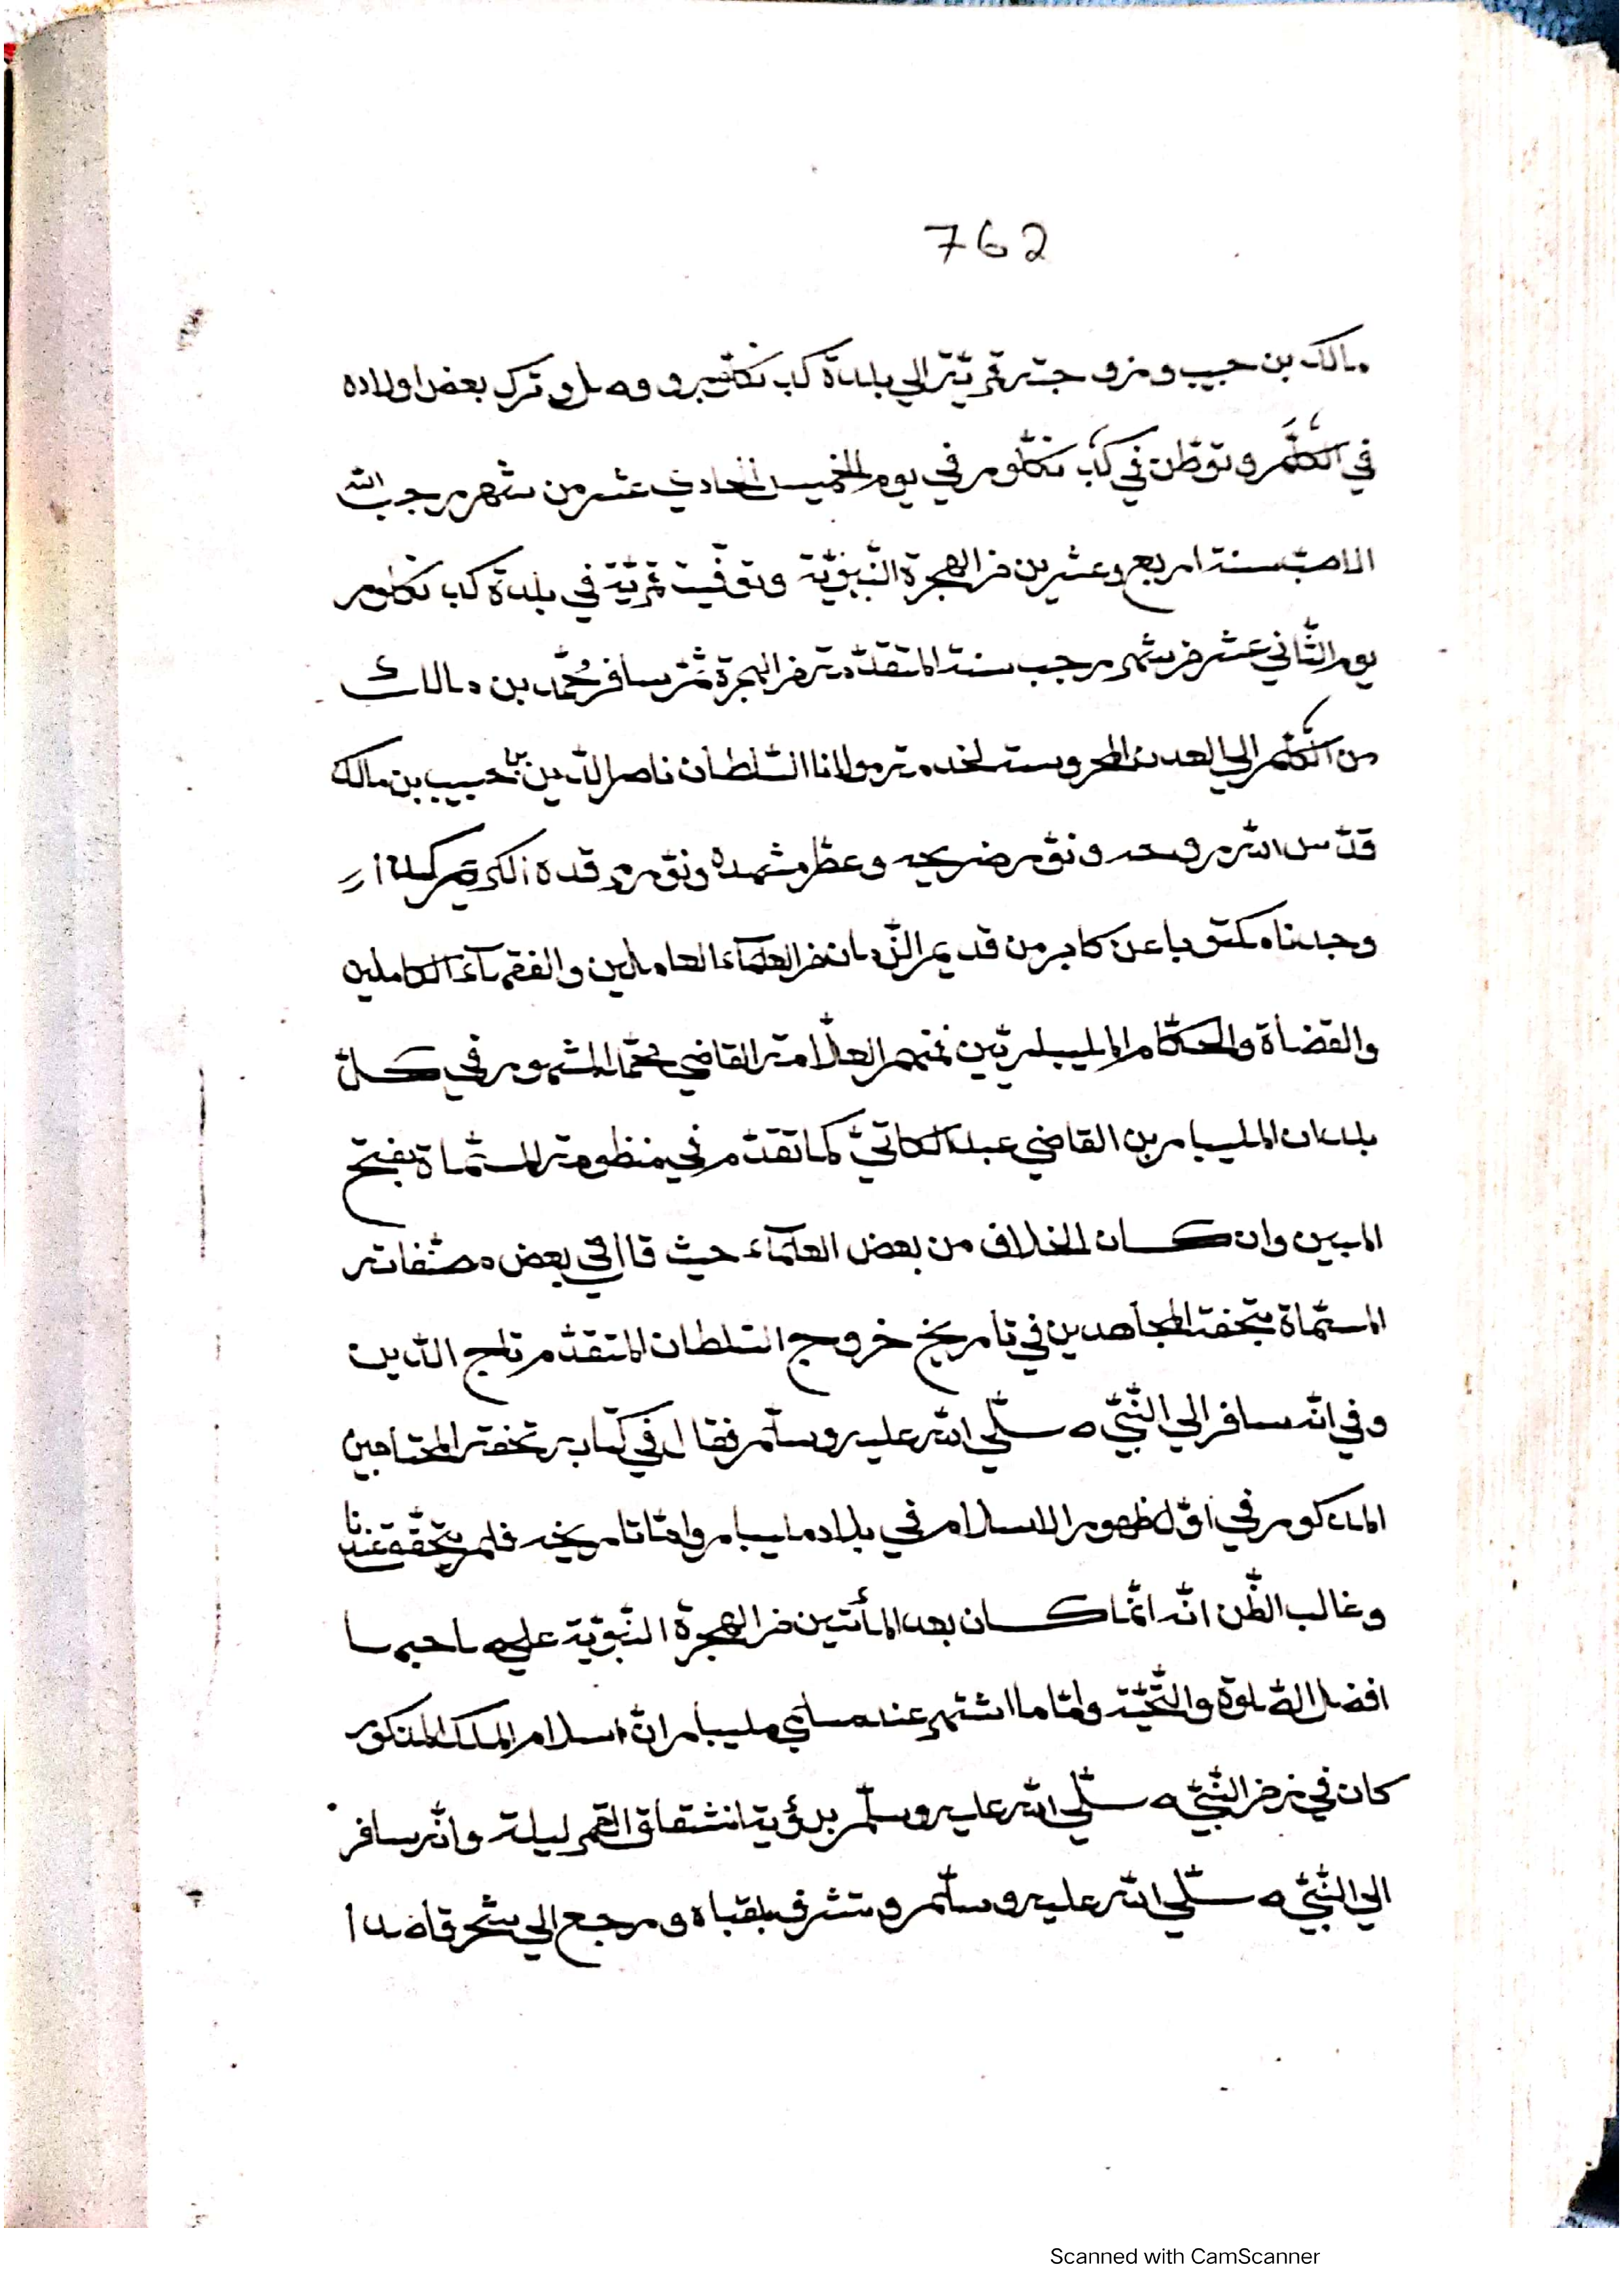 762
مالك بن حبيب وزوجته قمرية الي بلدة كب نكلور ووصل وترك بعض اولاده
في الكلم وتوطن في كب نكلور في يوم الخميس الحادي عشر من شهر رجب الله
الاصب سنة اربع وعشرين من الهجرة النبوية وتوفيت قمرية في بلدة كب نكلور
يوم الثاني عشر من شهر رجب سنة المتقدمة من الهجرة ثم سافر محمد بن مالك
من الكلم الي العدن المحروسة لخدمة مولانا السلطان ناصر الدين بن حبيب بن مالك
قدس الله روحه ونور ضريحه وعطر مشهده ونور مرقده الكريم
وجدناه مكتوبا عن كابر من قديم الزمان من العلماء العاملين والفقهاء الكاملين
والقضاة والحكام المليباريين فمنهم العلامة القاضي محمد المشهور في كل
بلدان المليبار بن القاضي عبد الكاتي كما تقدم في منظومته المسماة بفتح
المبين وان كان الخلاف من بعض العلماء حيث قال في بعض مصنفاته
المسماة بتحفة المجاهدين في تاريخ خروج السلطان المتقدم تاج الدين
وفي انه سافر الي النبي صلي الله عليه وسلم فقال في كتابه تحفة المجتاهدين
المذكور في اول ظهور الاسلام في بلاد مليبار واما تاريخه فلم يتحقق عندنا
وغالب الظن انه انما كان بعد المأتين من الهجرة النبوية علي صاحبها
افضل الصلوة والتحية واما ما اشتهر عند مسلمي مليبار ان اسلام الملك المذكور
كان في زمن النبي صلي الله عليه وسلم برؤية انشقاق القمر ليلة وانه سافر
الي النبي صلي الله عليه وسلم وتشرف بلقياه ورجع الي شحر قاصدا
Scanned with CamScanner